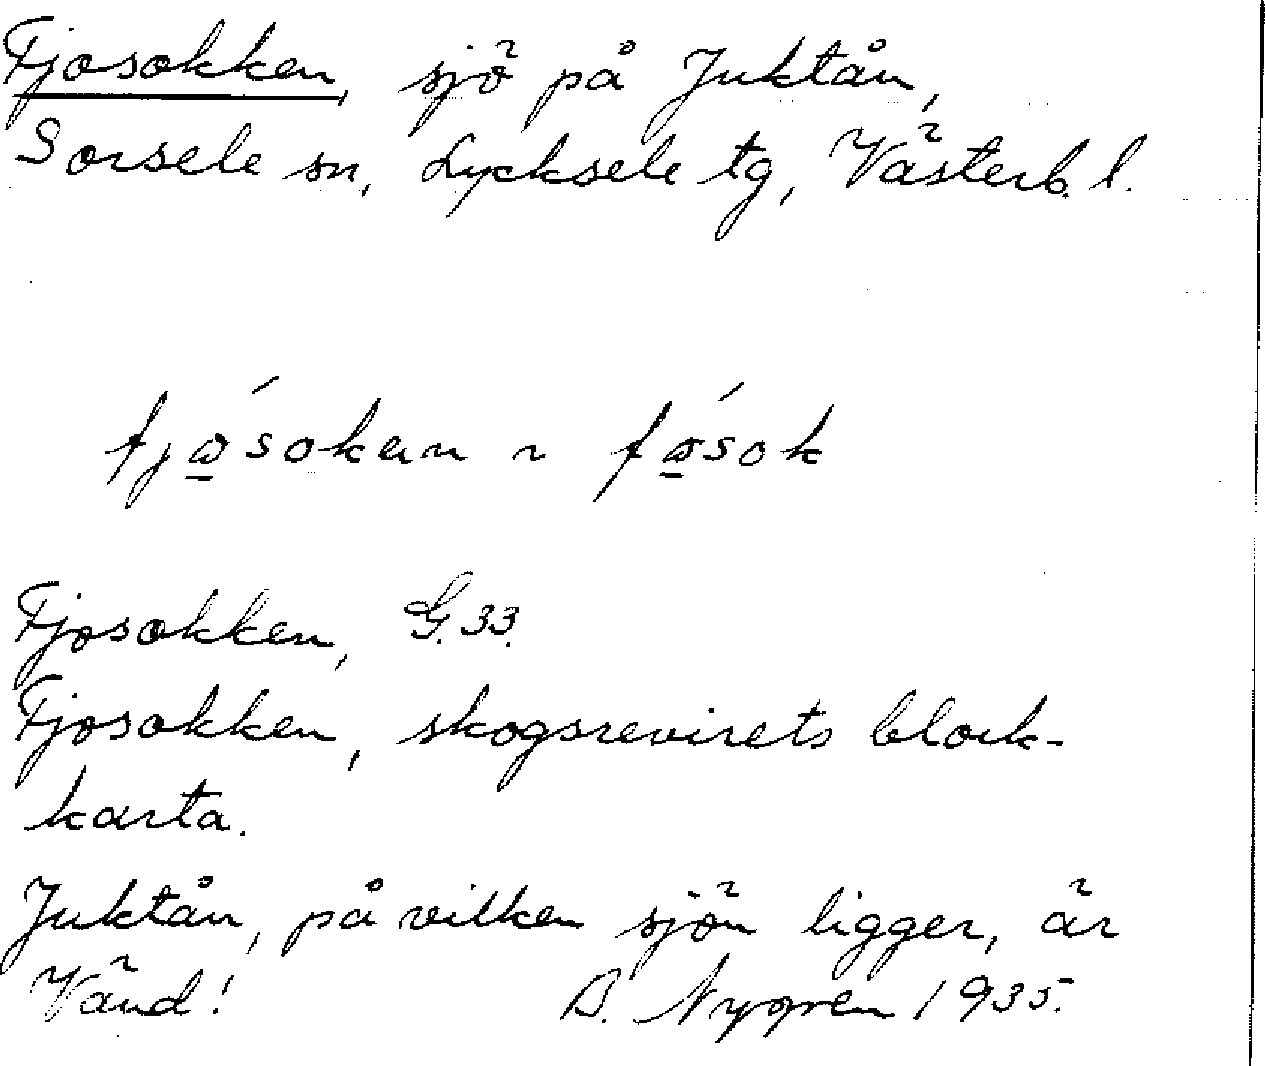 Fjosokken, sjö på Juktån,
Sorsele sn, Lycksele tg, Västerb. l.
fjó̲sokɐn ~ fó̲sok
Fjosokken, G. 33.
Fjosokken, skogsrevirets block-
karta.
Juktån, på vilken sjön ligger, är
Vänd! B. Nygren 1935.